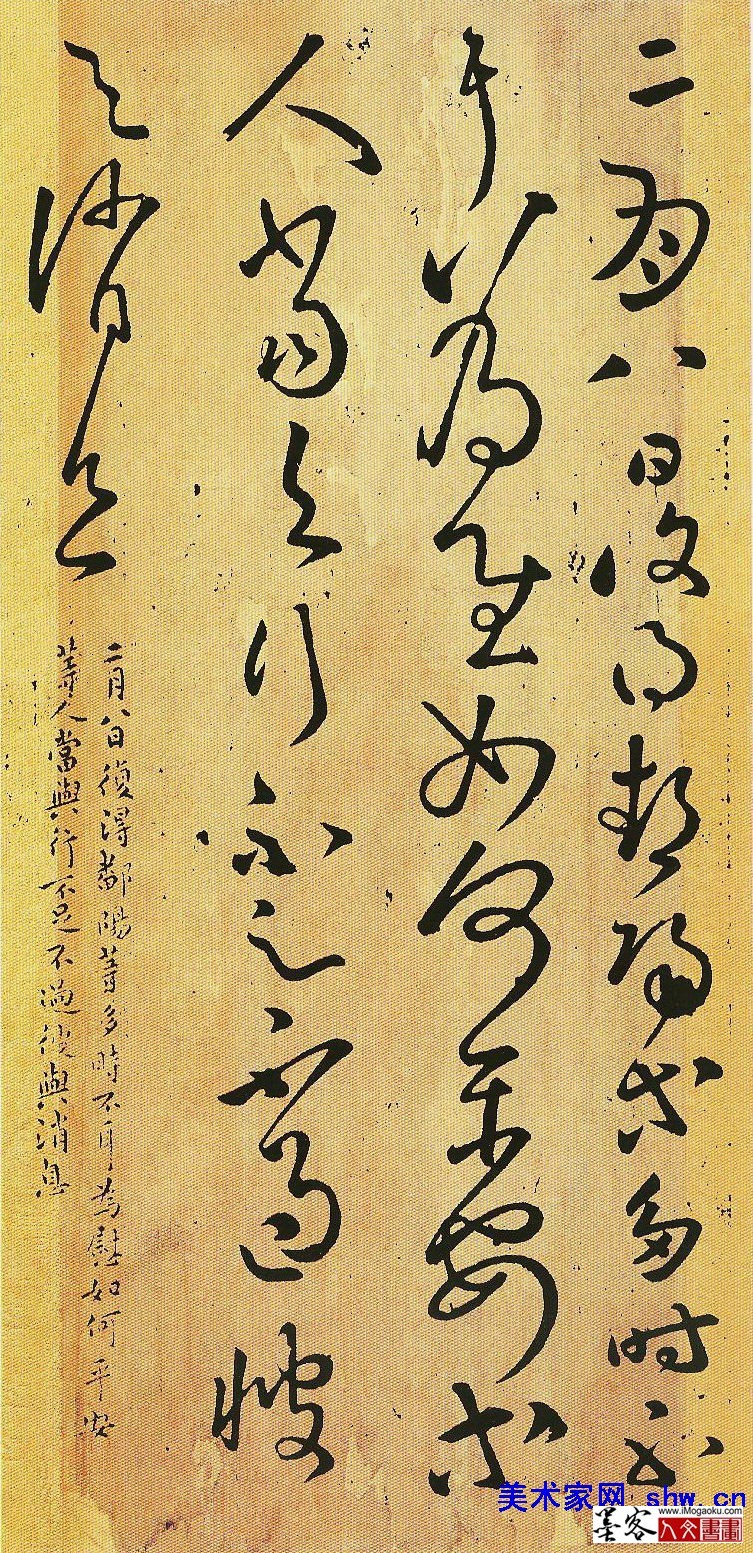 二月八日復得鄱陽等多時不
耳為慰如何平安等
人當與行不足不過彼
與消息
二月八日復得鄱陽等多時不耳為慰如何平安
等人當與行不足不過彼與消息
美术家网 shw.cn
墨客 www.iMogaoku.com
人文書畫